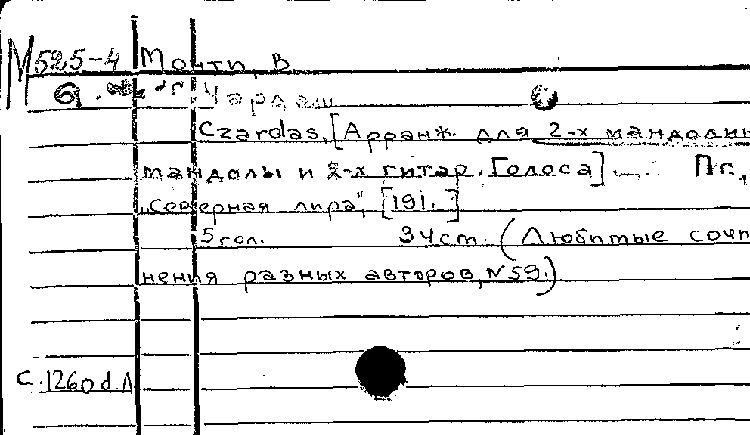 М525-4 Монти, В.
Чардаш
Czardas, [Арранж. для 2-х мандолин
мандолы и 2-х гитар. Голоса] –. Пг.,
„Северная лира", [191. ]
5 гол. 34 ст. (Любимые сочи
нения разных авторов, N 59.)
С.1260d.Л